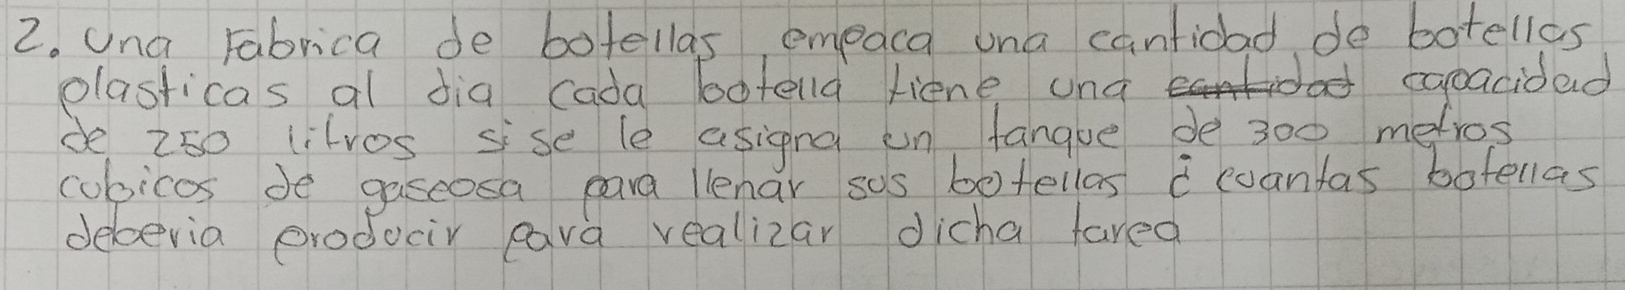 2. Una Fabrica de botellas empaca una cantidad de botellas
plasticas al dia cada botella tiene una cantidad capacidad
de 250 litros si se le asigna un tanque de 300 metros
cubicos de gaseosa para llenar sus botellas ¿ cuantas botellas
deberia producir para realizar dicha tarea